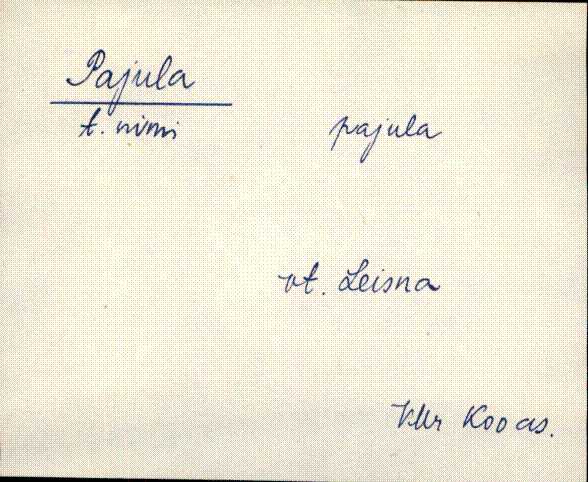 Pajula
t. nimi pajula
vt. Leisna
Kooas.